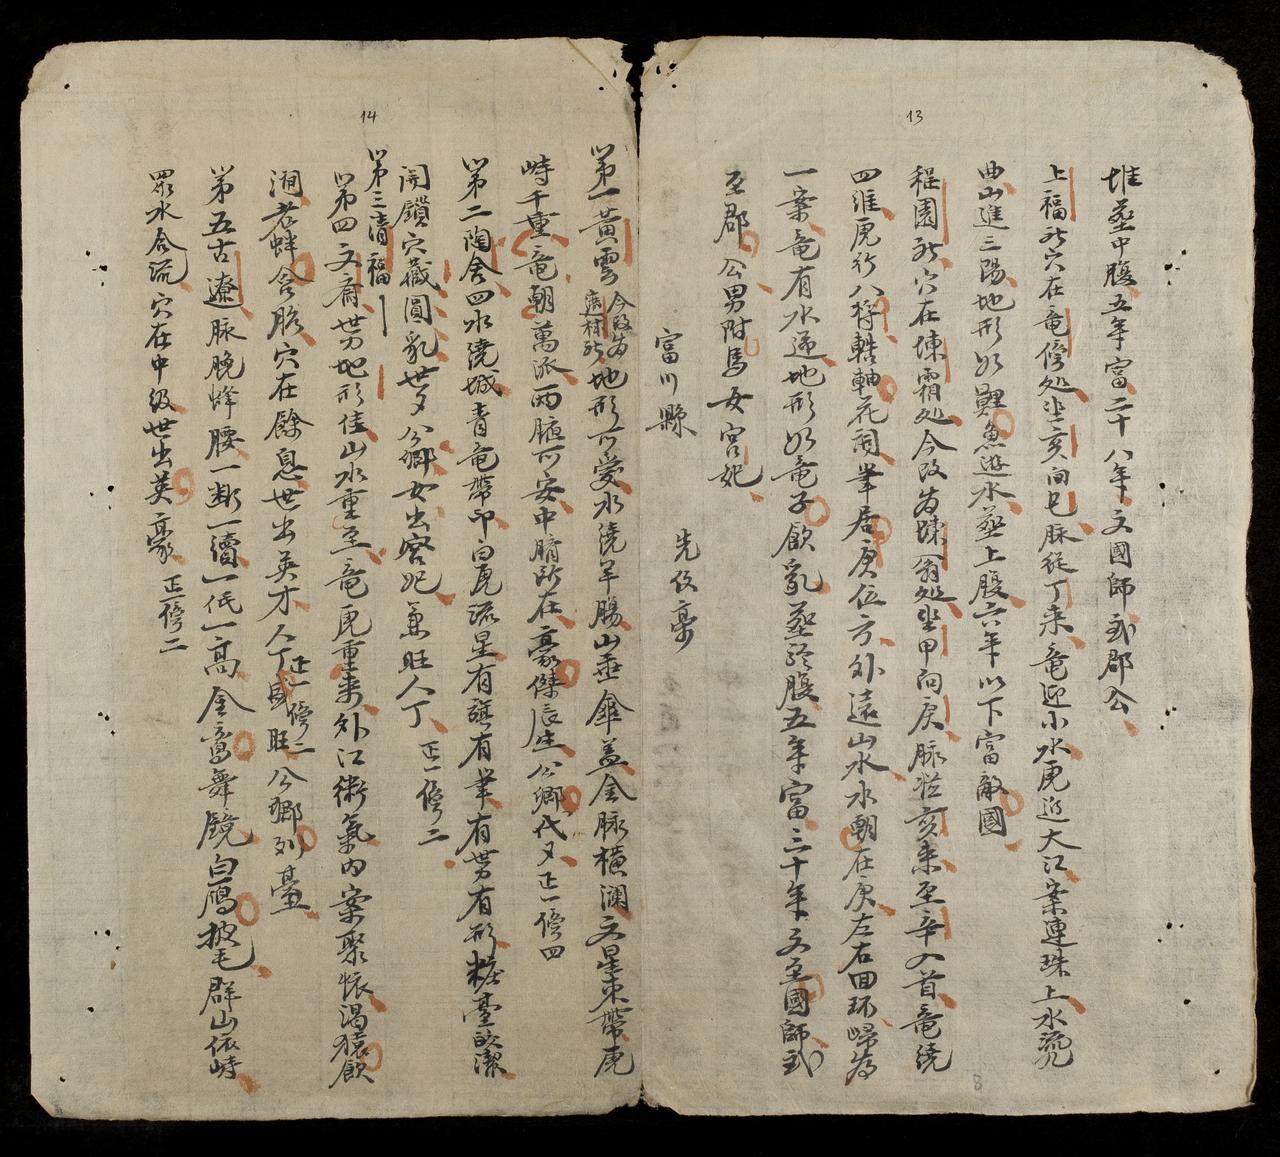 13
堆葬中腹五年富二十八年文國師武郡公
上福社穴在竜修処坐亥向巳脉従丁来竜迎小水虎近大江案連珠上水流
曲山進三陽地形如鯉魚遊水葬上腹六年以下富敵國
程園社穴在埬霜処今改為埬翁処坐甲向庚脉從亥来至辛入首竜繞
四維虎行八將轉軸花開筆居庚位方外遠山水水朝在庚左右回环歸為
一案竜有水逆地形如竜子飲乳葬終腹五年富三十年文至國師武
至郡公男附馬女宮妃
富川縣
先伎豪
14
第一黃雲今改為進村社地形可愛水繞羊腸山垂傘盖金脉橫瀾文星束帶虎
峙千重竜朝萬派两腋可安中腩所在豪傑辰生公鄉代夕正一傍四
第二陶舍四水繞城青竜帶印白虎流星有旗有筆有势有形粧臺皎潔
開鎖穴藏圓乳世夕公鄉女出宮妃兼旺人丁正一傍二
第三清福
第四文齋世势地形佳山水重至竜虎重来外江衛氣内案聚懷渴猿飲
澗老蚌含胎穴在餘息世出英才人丁盛旺公鄉列臺正一傍二
第五古遼脉晚蜂腰一断一續一低一高金鸞舞鏡白鴈披毛群山依峙
眾水合流穴在中級世出英豪正一傍二
8